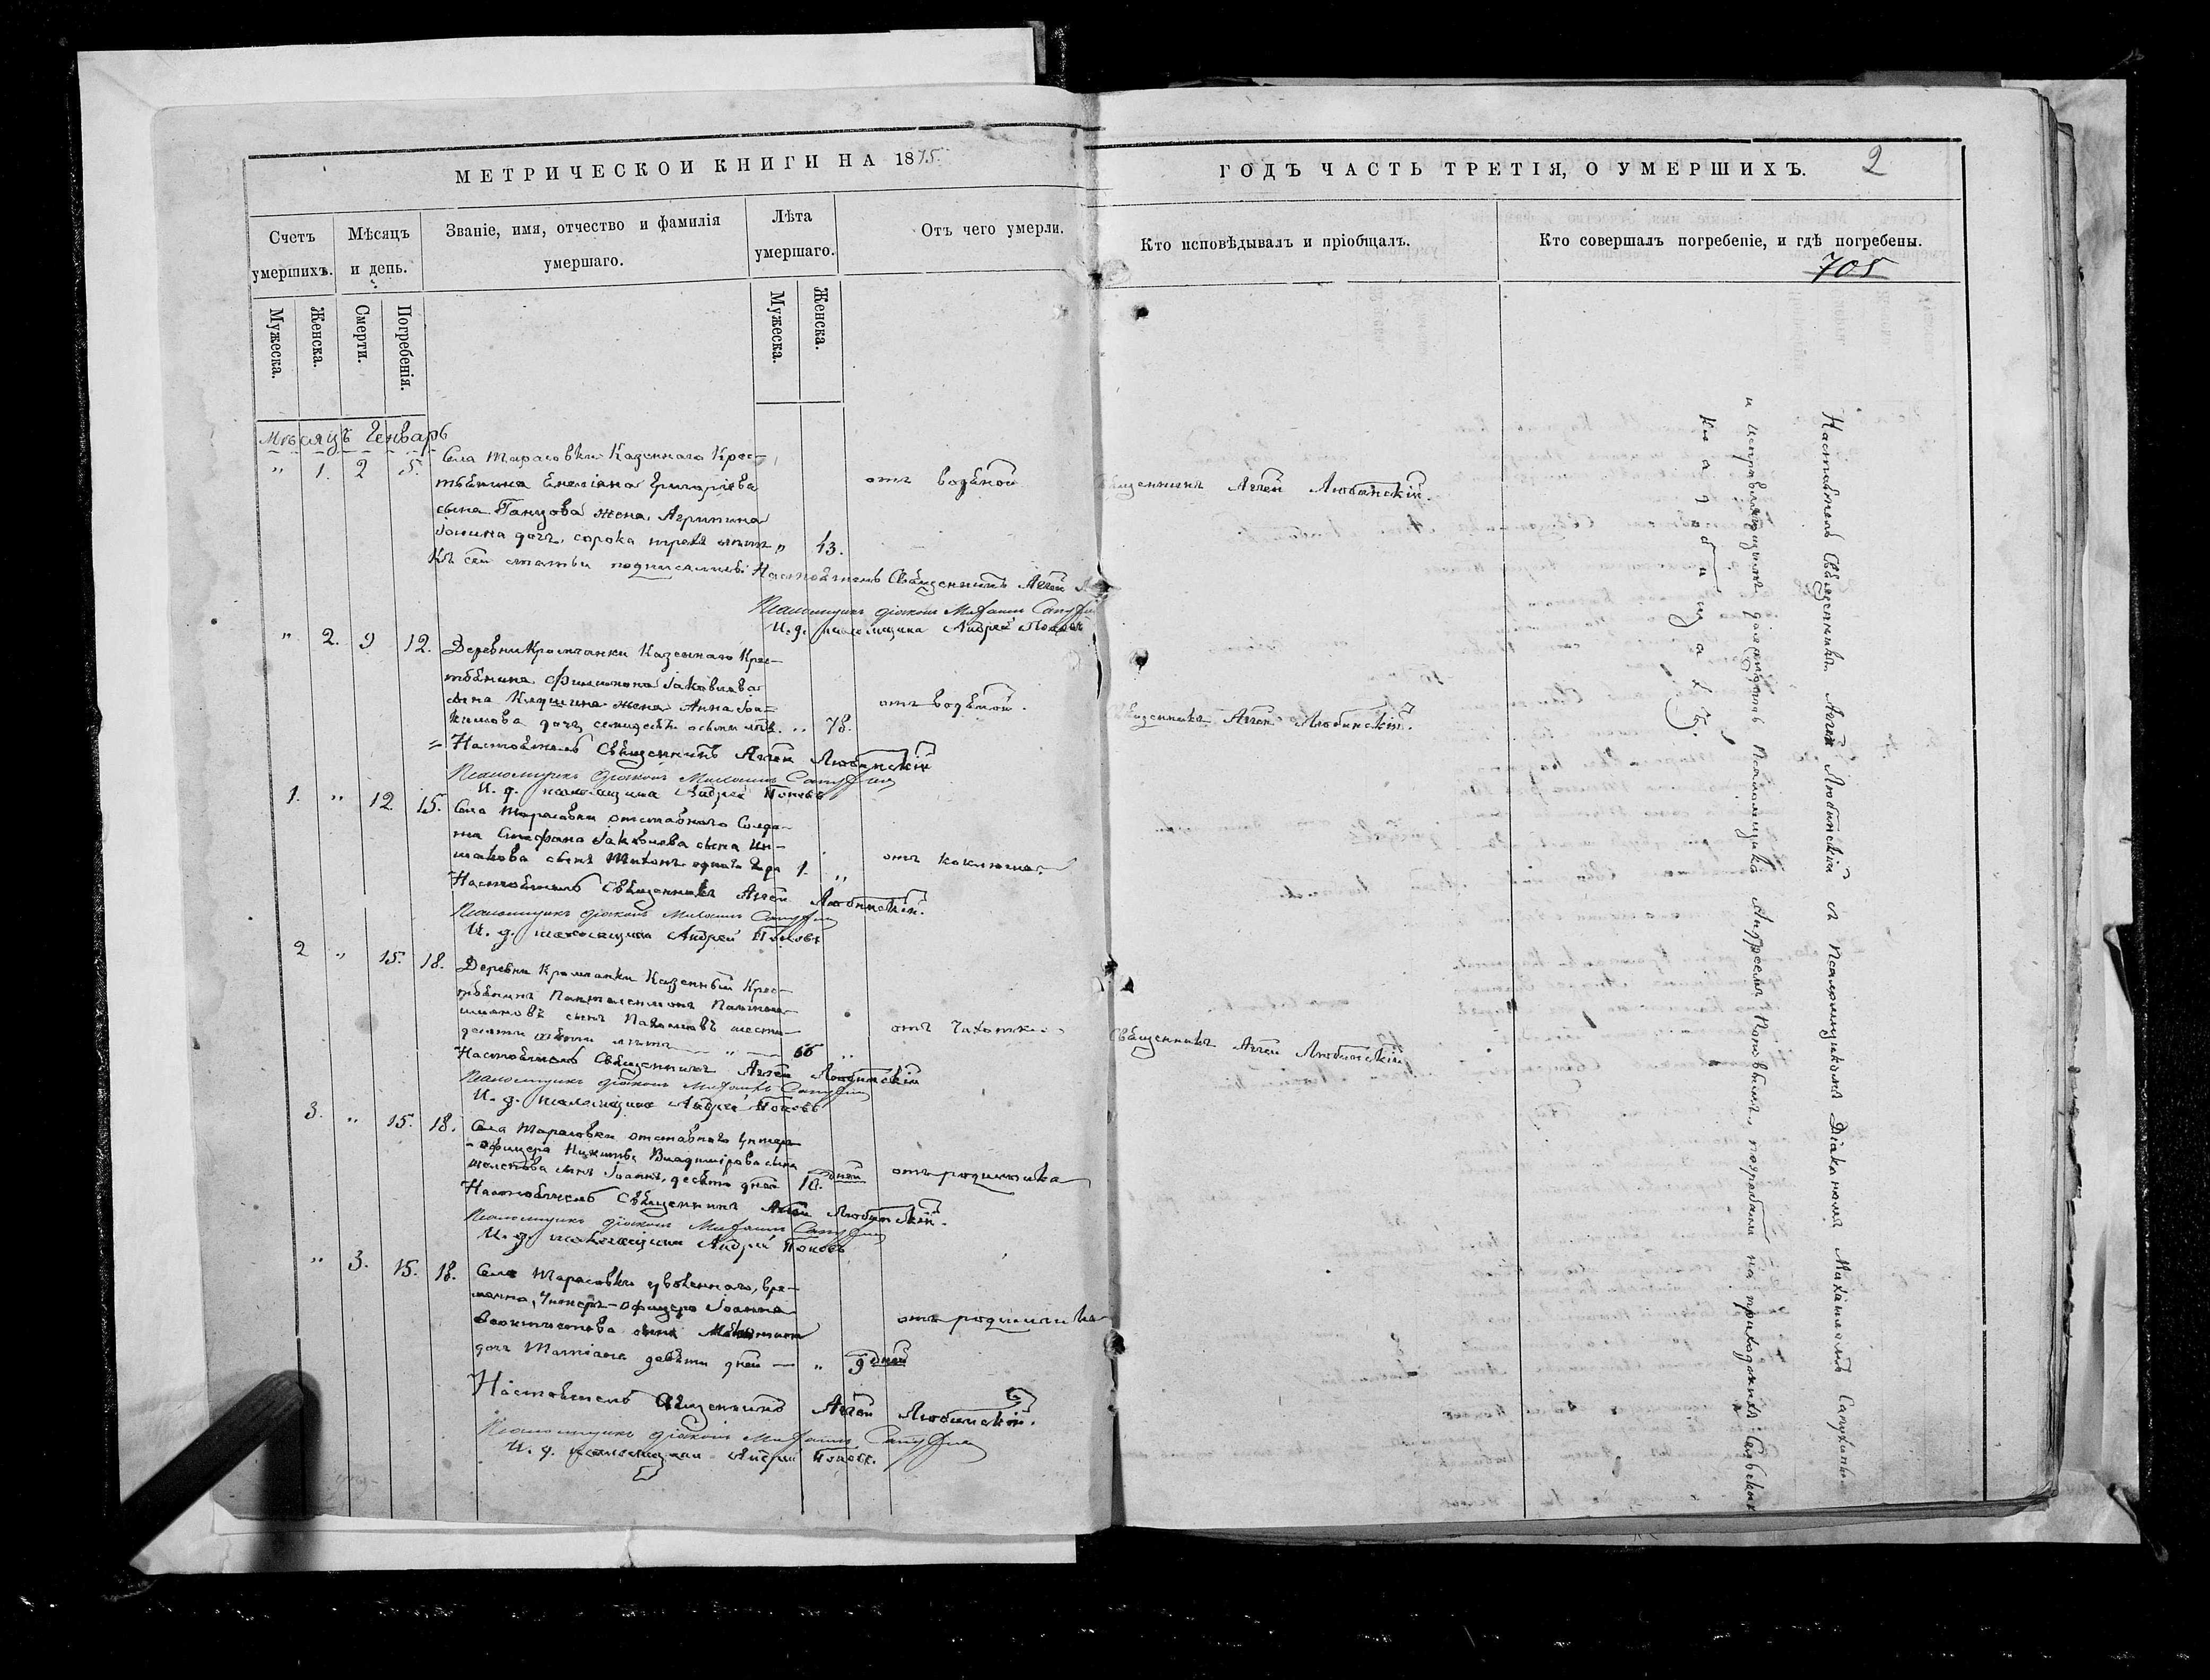 МЕТРИЧЕСКОЙ КНИГИ НА 1875.
ГОДЪ ЧАСТЬ ТРЕТІЯ, О УМЕРШИХЪ.
2
Счетъ умершихъ.
Мѣсяцъ и день.
Званіе, имя, отчество и фамилія умершаго.
Лѣта умершаго.
Отъ чего умерли.
Кто исповѣдывалъ и пріобщалъ.
Кто совершалъ погребеніе, и гдѣ погребены.
705
Мужеска.
Женска.
Смерти.
Погребенія.
Мужеска.
Женска.
Мѣсяцъ Генварь
" 1. 2 5. Села Тарасовки Казеннаго Крес-
тьянина Емеліяна Григоріева
сына жена, Агрипина
дочь, сорока трехъ лѣтъ " 43.
отъ водяной
Священникъ Аггей Любинскій.
Къ сей статьи подписались: Настоятель Священникъ Аггей
Псаломщикъ діаконъ Михаилъ
И. д. псаломщика Андрей Поповъ
" 2. 9 12. Деревни Казеннаго Крес-
тьянина Филимона Іаковлева
сына жена Анна Іоа-
кимова дочь семидесяти осьми лѣтъ. " 78.
отъ водяной.
Священникъ Аггей Любинскій.
Настоятель Священникъ Аггей Любинскій
Псаломщикъ діаконъ Михаилъ
И. д. псаломщика Андрей Поповъ
1. " 12 15. Села Тарасовки отставнаго Солда-
та Стефана Іаковлева сына
сынъ Тихонъ одного года 1. "
отъ коклюша.
Настоятель Священникъ Аггей Любинскій.
Псаломщикъ діаконъ Михаилъ
И. д. псаломщика Андрей Поповъ
2 " 15. 18. Деревни Казенный Крес-
тьянинъ Пантелеимонъ
сынъ Пахомовъ шести-
десяти лѣтъ "
отъ Чахотки
Священникъ Аггей Любинскій
Настоятель Священникъ Аггей Любинскій
Псаломщикъ діаконъ Михаилъ
И. д. псаломщика Андрей Поповъ
3. " 15. 18. Села Тарасовки отставнаго Унтеръ
-офицера Никиты Владимірова сына
сынъ Іоаннъ, десяти дней 10. дней
отъ родимчика
Настоятель Священникъ Аггей Любинскій.
Псаломщикъ діаконъ Михаилъ
И. д. псаломщика Андрей Поповъ
" 3. 15. 18. Села Тарасовки уволеннаго, вре-
менно, Унтеръ-офицера Іоанна
сына
дочь Татіана девяти дней — " 9 дней
отъ родимчика
Настоятель Священникъ Аггей Любинскій.
Псаломщикъ діаконъ Михаилъ
И. д. псаломщика Андрей Поповъ.
Настоятель Священникъ Аггей Любинскій съ Псаломщикомъ Діакономъ Михаиломъ
и исправляющимъ должность Псаломщика Андреемъ Поповымъ, погребали на приходскихъ Сельскихъ
кладбищахъ.